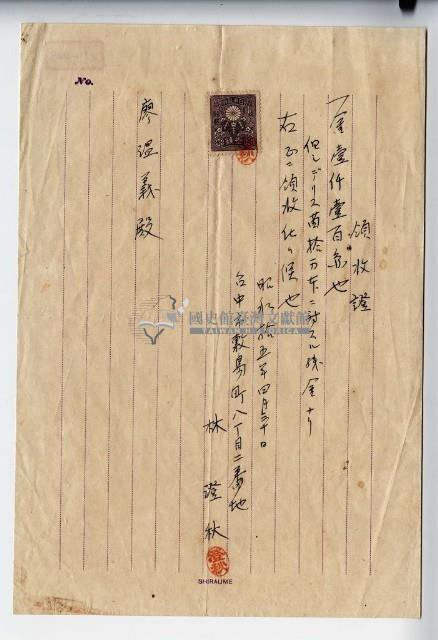 No.
領收證
一金壹仟壹百円也
但シデリス苗拾万本ニ対スル残金ナリ
右正ニ領收仕リ候也
昭和拾五年四月三十日
台中市敷島町八丁目二番地
林澄秋
廖温義殿
國史館臺灣文獻館
TAIWAN HISTORICA
SHIRAUME